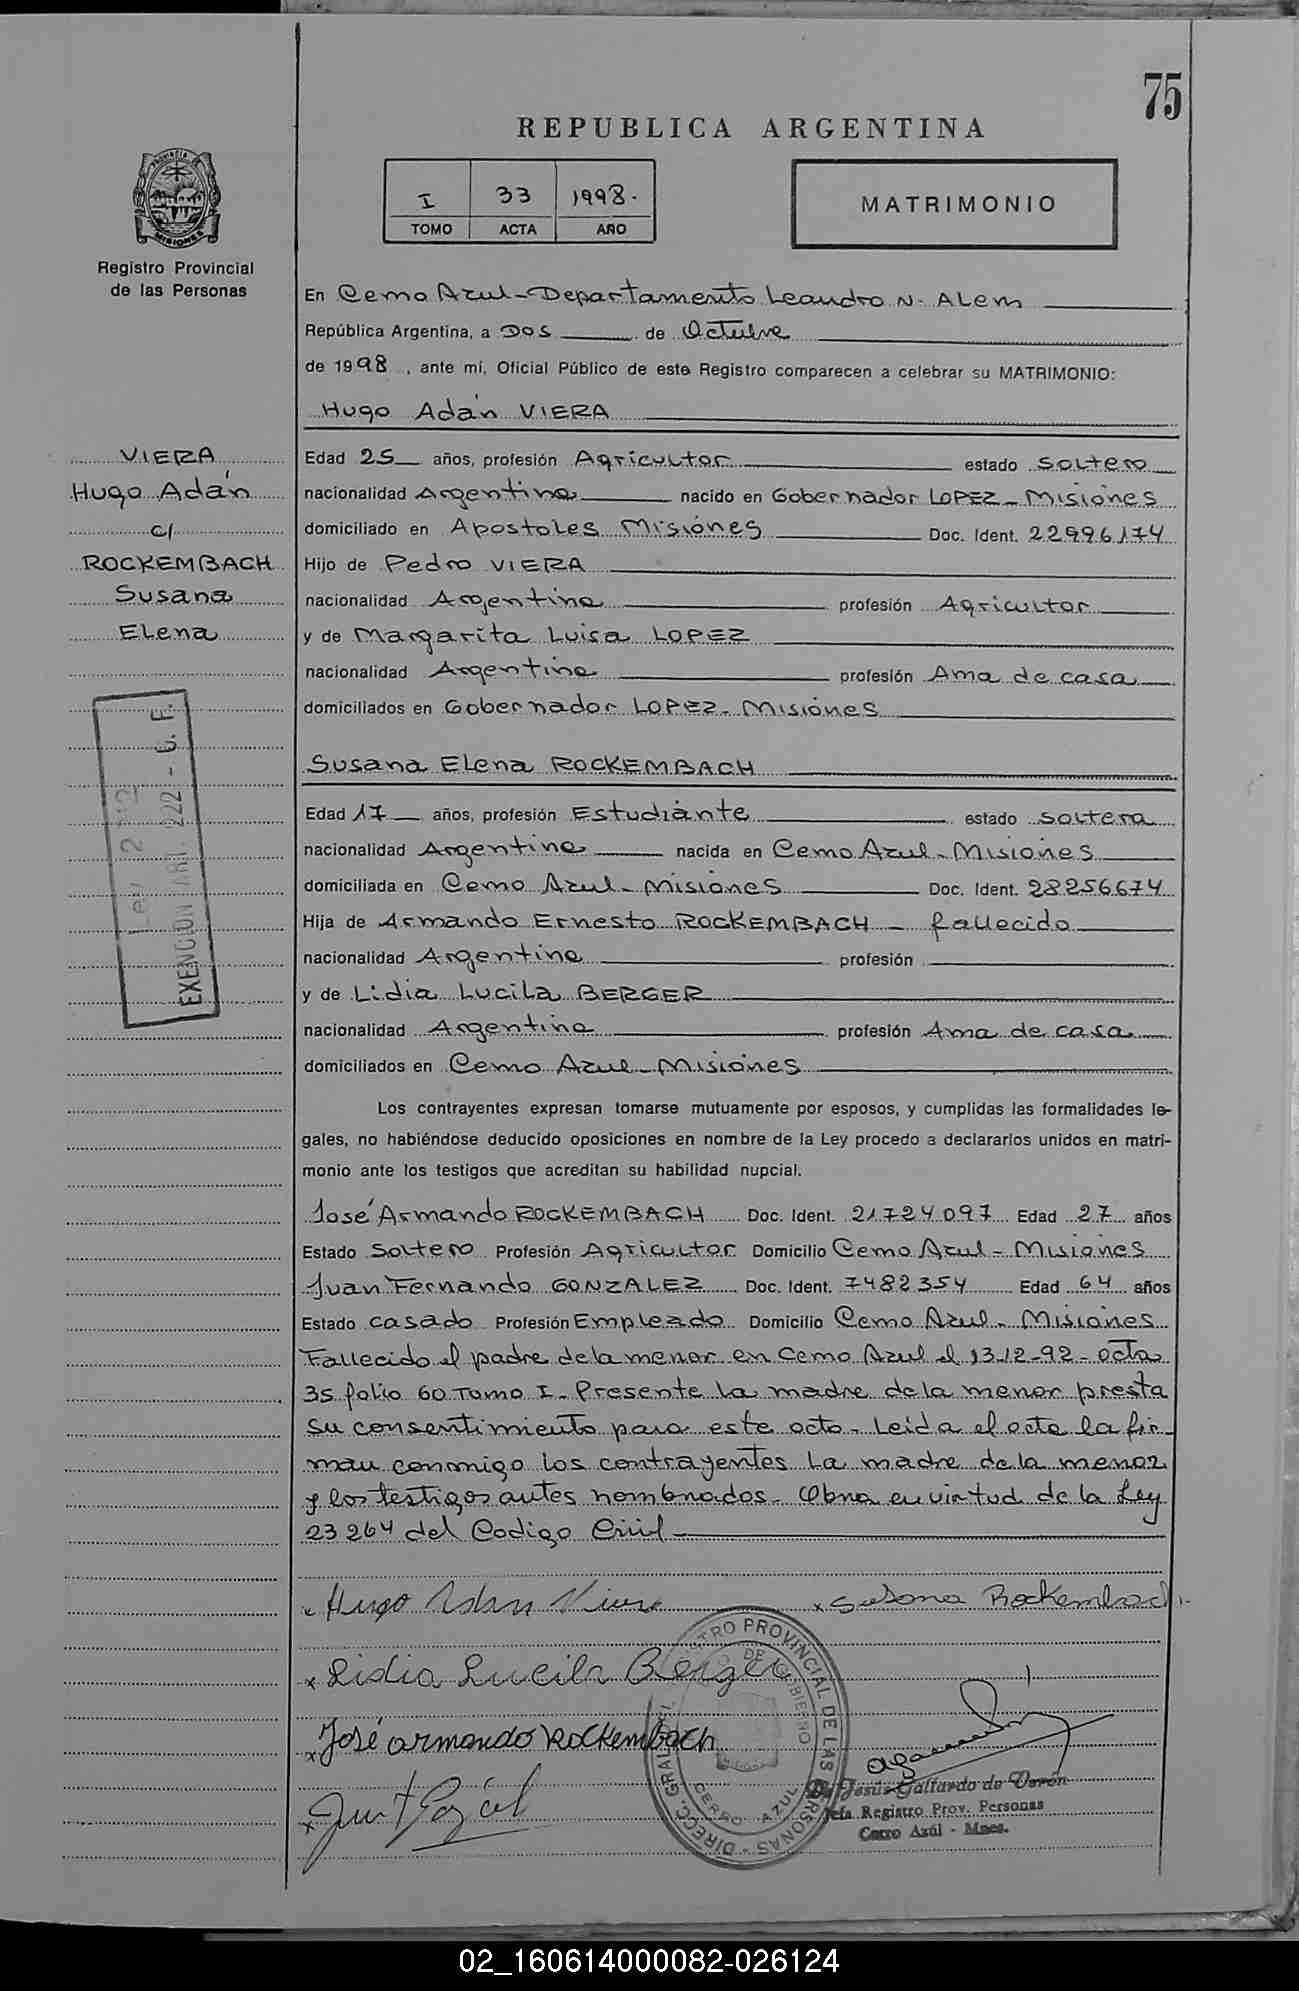 75
REPUBLICA ARGENTINA
I 33 1998.
TOMO ACTA AÑO
MATRIMONIO
PROVINCIA DE MISIONES
Registro Provincial
de las Personas
En Cerro Azul - Departamento Leandro N. Alem
República Argentina, a Dos de Octubre
de 1998, ante mí, Oficial Público de este Registro comparecen a celebrar su MATRIMONIO:
Hugo Adán VIERA
VIERA
Hugo Adán
c/
ROCKEMBACH
Susana
Elena
Edad 25 años, profesión Agricultor estado soltero
nacionalidad Argentina nacido en Gobernador LOPEZ - Misiones
domiciliado en Apostoles Misiones Doc. Ident. 22996174
Hijo de Pedro VIERA
nacionalidad Argentina profesión Agricultor
y de Margarita Luisa LOPEZ
nacionalidad Argentina profesión Ama de casa
domiciliados en Gobernador LOPEZ - Misiones
Susana Elena ROCKEMBACH
Edad 17 años, profesión Estudiante estado soltera
nacionalidad Argentina nacida en Cerro Azul - Misiones
domiciliada en Cerro Azul - Misiones Doc. Ident. 28256674
Hija de Armando Ernesto ROCKEMBACH - fallecido
nacionalidad Argentina profesión
y de Lidia Lucila BERGER
nacionalidad Argentina profesión Ama de casa
domiciliados en Cerro Azul - Misiones
EXENCION ARR. 222 - C. F.
Los contrayentes expresan tomarse mutuamente por esposos, y cumplidas las formalidades le-
gales, no habiéndose deducido oposiciones en nombre de la Ley procedo a declararlos unidos en matri-
monio ante los testigos que acreditan su habilidad nupcial.
José Armando ROCKEMBACH Doc. Ident. 21724097 Edad 27 años
Estado Soltero Profesión Agricultor Domicilio Cerro Azul - Misiones
Juan Fernando GONZALEZ Doc. Ident. 7482354 Edad 64 años
Estado casado Profesión Empleado Domicilio Cerro Azul - Misiones
Fallecido el padre de la menor en Cerro Azul el 13-12-92 - acta
35 folio 60 Tomo I - Presente la madre de la menor presta
su consentimiento para este acto - Leida el acta la fir-
man conmigo los contrayentes La madre de la menor
y los testigos antes nombrados - Obra en virtud de la Ley
23264 del Codigo Civil
x Hugo Adan Viera x Susana Rockembach
x Lidia Lucila Berger
x José armando Rockembach
x
DIRECC. GRAL. REGISTRO PROVINCIAL DE LAS PERSONAS
CERRO AZUL
De Jesús Gallardo de Verón
Jefa Registro Prov. Personas
Cerro Azúl - Mnes.
02_160614000082-026124